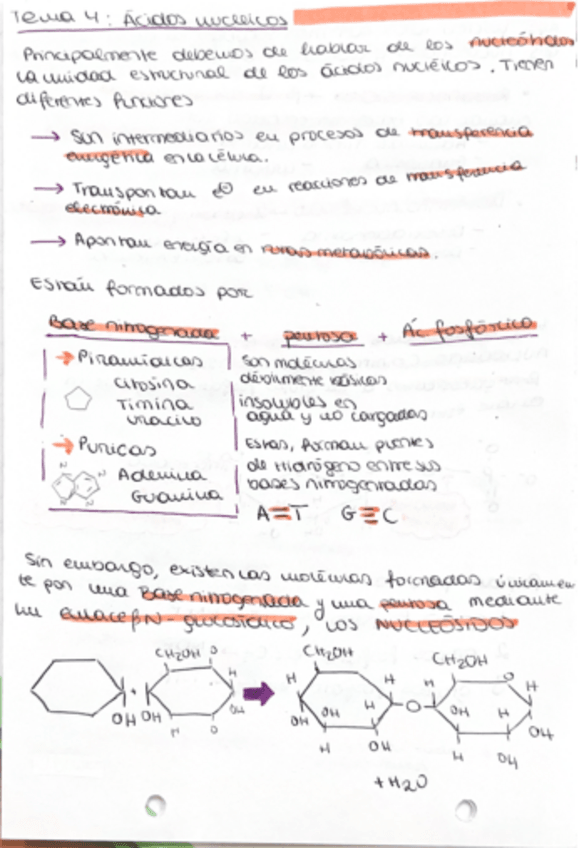 Tema 4: Ácidos nucleicos
Principalmente debemos de hablar de los nucleótidos
La unidad estructural de los ácidos nucléicos. Tienen
diferentes funciones
→ Sun intermediarios en procesos de transferencia
energética en la célula.
→ Transportan e⊖ en reacciones de transferencia
electrónica
→ Aportan energía en rutas metabólicas.
Están formados por
Base nitrogenada + pentosa + Ác fosfórico
→ Piramídicas
citosina
Timina
uracilo
→ Puricas
N N
N
Adenina
Guanina
Son moléculas
débilmente básicas
insolubles en
agua y no cargadas
Estas, forman puentes
de Hidrógeno entre sus
bases nitrogenadas
A=T G≡C
Sin embargo, existen las moléculas formadas únicamen
te por una Base nitrogenada y una pentosa mediante
un enlace βN-glucosídico, los NUCLEÓSIDOS
CH₂OH O CH₂OH CH₂OH O
+ H H H H H
OH OH OH OH OH H O H OH H OH
H O H OH H OH
+H₂O